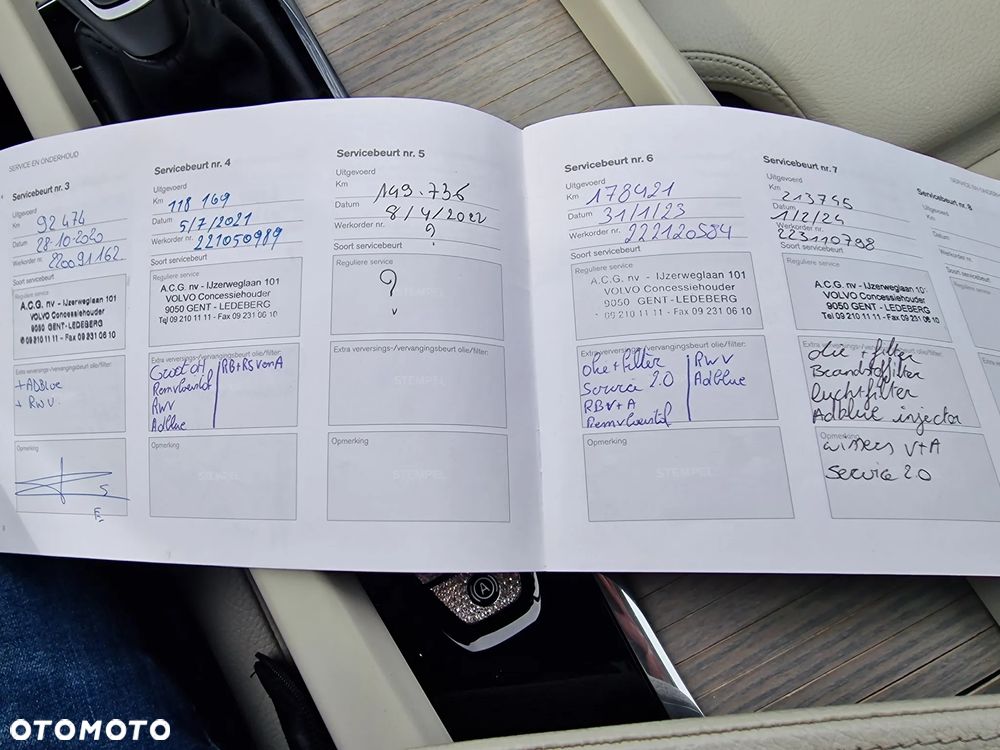 SERVICE EN ONDERHOUD
Servicebeurt nr. 3
Uitgevoerd
Km 92 474
Datum 28-10-2020
Werkorder nr. 220091162
Soort servicebeurt
Reguliere service
A.C.G. nv - IJzerweglaan 101
VOLVO Concessiehouder
9050 GENT - LEDEBERG
✆ 09 210 11 11 - Fax 09 231 06 10
Extra verversings-/vervangingsbeurt olie/filter:
+ ADBlue
+ RWV
Opmerking
Servicebeurt nr. 4
Uitgevoerd
Km 118 169
Datum 5/7/2021
Werkorder nr. 221050989
Soort servicebeurt
Reguliere service
A.C.G. nv - IJzerweglaan 101
VOLVO Concessiehouder
9050 GENT - LEDEBERG
Tel 09 210 11 11 - Fax 09 231 06 10
Extra verversings-/vervangingsbeurt olie/filter:
Groot OH
RB+RS V en A
Remvloeistof
RWV
Adblue
Opmerking
Servicebeurt nr. 5
Uitgevoerd
Km 149.736
Datum 8/4/2022
Werkorder nr. ?
Soort servicebeurt
Reguliere service
?
STEMPEL
Extra verversings-/vervangingsbeurt olie/filter:
STEMPEL
Opmerking
STEMPEL
Servicebeurt nr. 6
Uitgevoerd
Km 178421
Datum 31/1/23
Werkorder nr. 222120584
Soort servicebeurt
Reguliere service
A.C.G. nv - IJzerweglaan 101
VOLVO Concessiehouder
9050 GENT - LEDEBERG
09 210 11 11 - Fax 09 231 06 10
Extra verversings-/vervangingsbeurt olie/filter:
olie + filter
RWV
Service 2.0
Adblue
RB V+A
Remvloeistof
Opmerking
STEMPEL
Servicebeurt nr. 7
Uitgevoerd
Km 213796
Datum 1/2/24
Werkorder nr. 223110798
Soort servicebeurt
Reguliere service
A.C.G. nv - IJzerweglaan 101
VOLVO Concessiehouder
9050 GENT - LEDEBERG
Tel 09 210 11 11 - Fax 09 231 06 10
Extra verversings-/vervangingsbeurt olie/filter:
olie + filter
Brandstoffilter
luchtfilter
Adblue injector
Opmerking
wissers V+A
Service 2.0
SERVICE EN
Servicebeurt nr. 8
Uitgevoerd
Km
Datum
Werkorder nr.
Soort servicebeurt
Reguliere service
A
OTOMOTO